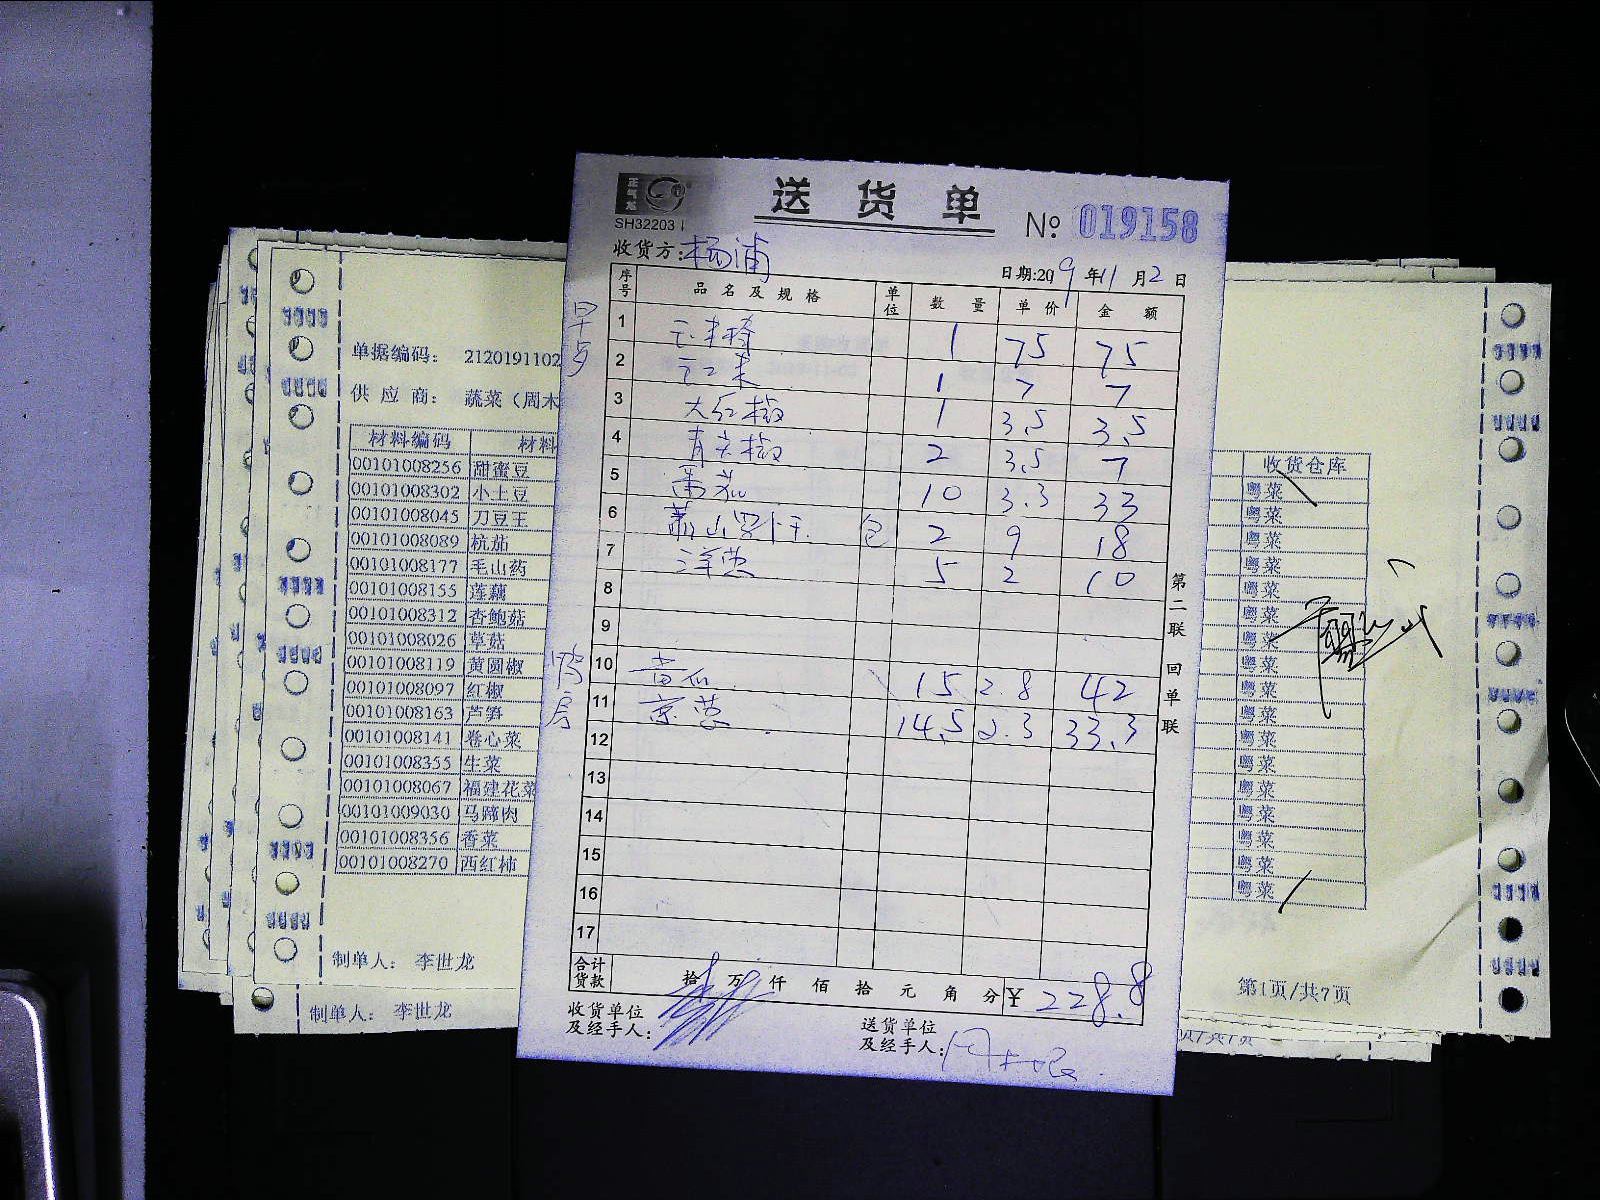 正气龙
SH32203
送货单
№ 019158
收货方:杨浦
日期:2019年11月2日
序号 品名及规格 单位 数量 单价 金额
早点
1 1 75 75
2 1 7 7
3 大红椒 1 3.5 3.5
4 青尖椒 2 3.5 7
5 番茄 10 3.3 33
6 萧山萝卜干 包 2 9 18
7 洋葱 5 2 10
8
9
鸭房
10 黄瓜 15 2.8 42
11 京葱 14.5 2.3 33.3
12
13
14
15
16
17
合计货款 拾 万 仟 佰 拾 元 角 分 ¥ 228.8
收货单位及经手人:
送货单位及经手人:
第二联 回单联
单据编码: 2120191102
供应商: 蔬菜(周木
材料编码 材料 收货仓库
00101008256 甜蜜豆 粤菜
00101008302 小土豆 粤菜
00101008045 刀豆王 粤菜
00101008089 杭茄 粤菜
00101008177 毛山药 粤菜
00101008155 莲藕 粤菜
00101008312 杏鲍菇 粤菜
00101008026 草菇 粤菜
00101008119 黄圆椒 粤菜
00101008097 红椒 粤菜
00101008163 芦笋 粤菜
00101008141 卷心菜 粤菜
00101008355 生菜 粤菜
00101008067 福建花菜 粤菜
00101009030 马蹄肉 粤菜
00101008356 香菜 粤菜
00101008270 西红柿 粤菜
制单人: 李世龙
第1页/共7页
制单人: 李世龙
页/共7页